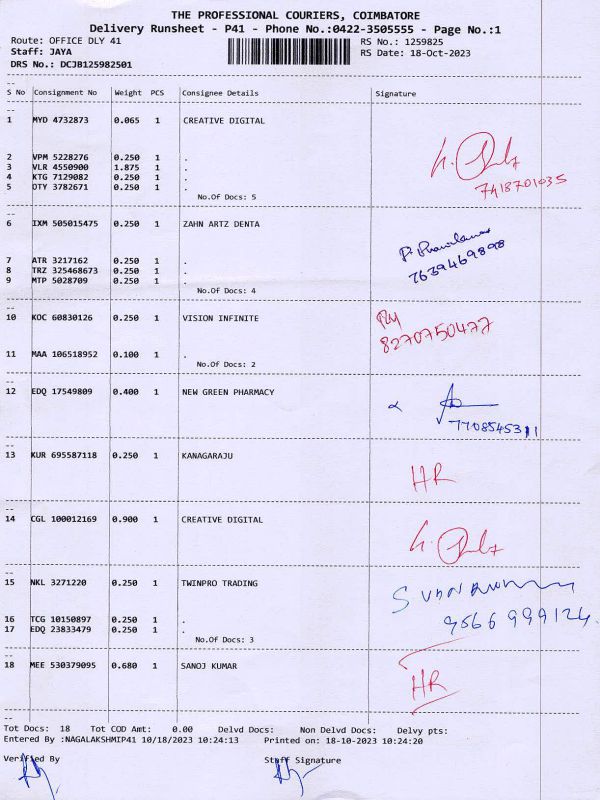 THE PROFESSIONAL COURIERS, COIMBATORE
Delivery Runsheet - P41 - Phone No.:0422-3505555 - Page No.:1
Route: OFFICE DLY 41 RS No.: 1259825
Staff: JAYA RS Date: 18-Oct-2023
DRS No.: DCJB125982501
S No Consignment No Weight PCS Consignee Details Signature
1 MYD 4732873 0.065 1 CREATIVE DIGITAL
2 VPM 5228276 0.250 1 .
3 VLR 4550900 1.875 1 .
4 KTG 7129082 0.250 1 .
5 OTY 3782671 0.250 1 .
7418701035
No.Of Docs: 5
6 IXM 505015475 0.250 1 ZAHN ARTZ DENTA
7 ATR 3217162 0.250 1 .
8 TRZ 325468673 0.250 1 .
9 MTP 5028709 0.250 1 .
7639469898
No.Of Docs: 4
10 KOC 60830126 0.250 1 VISION INFINITE
8270750477
11 MAA 106518952 0.100 1 .
No.Of Docs: 2
12 EDQ 17549809 0.400 1 NEW GREEN PHARMACY
7708545311
13 KUR 695587118 0.250 1 KANAGARAJU
HR
14 CGL 100012169 0.900 1 CREATIVE DIGITAL
15 NKL 3271220 0.250 1 TWINPRO TRADING
16 TCG 10150897 0.250 1 .
17 EDQ 23833479 0.250 1 .
9566999124
No.Of Docs: 3
18 MEE 530379095 0.680 1 SANOJ KUMAR
HR
Tot Docs: 18 Tot COD Amt: 0.00 Delvd Docs: Non Delvd Docs: Delvy pts:
Entered By :NAGALAKSHMIP41 10/18/2023 10:24:13 Printed on: 18-10-2023 10:24:20
Verified By Staff Signature